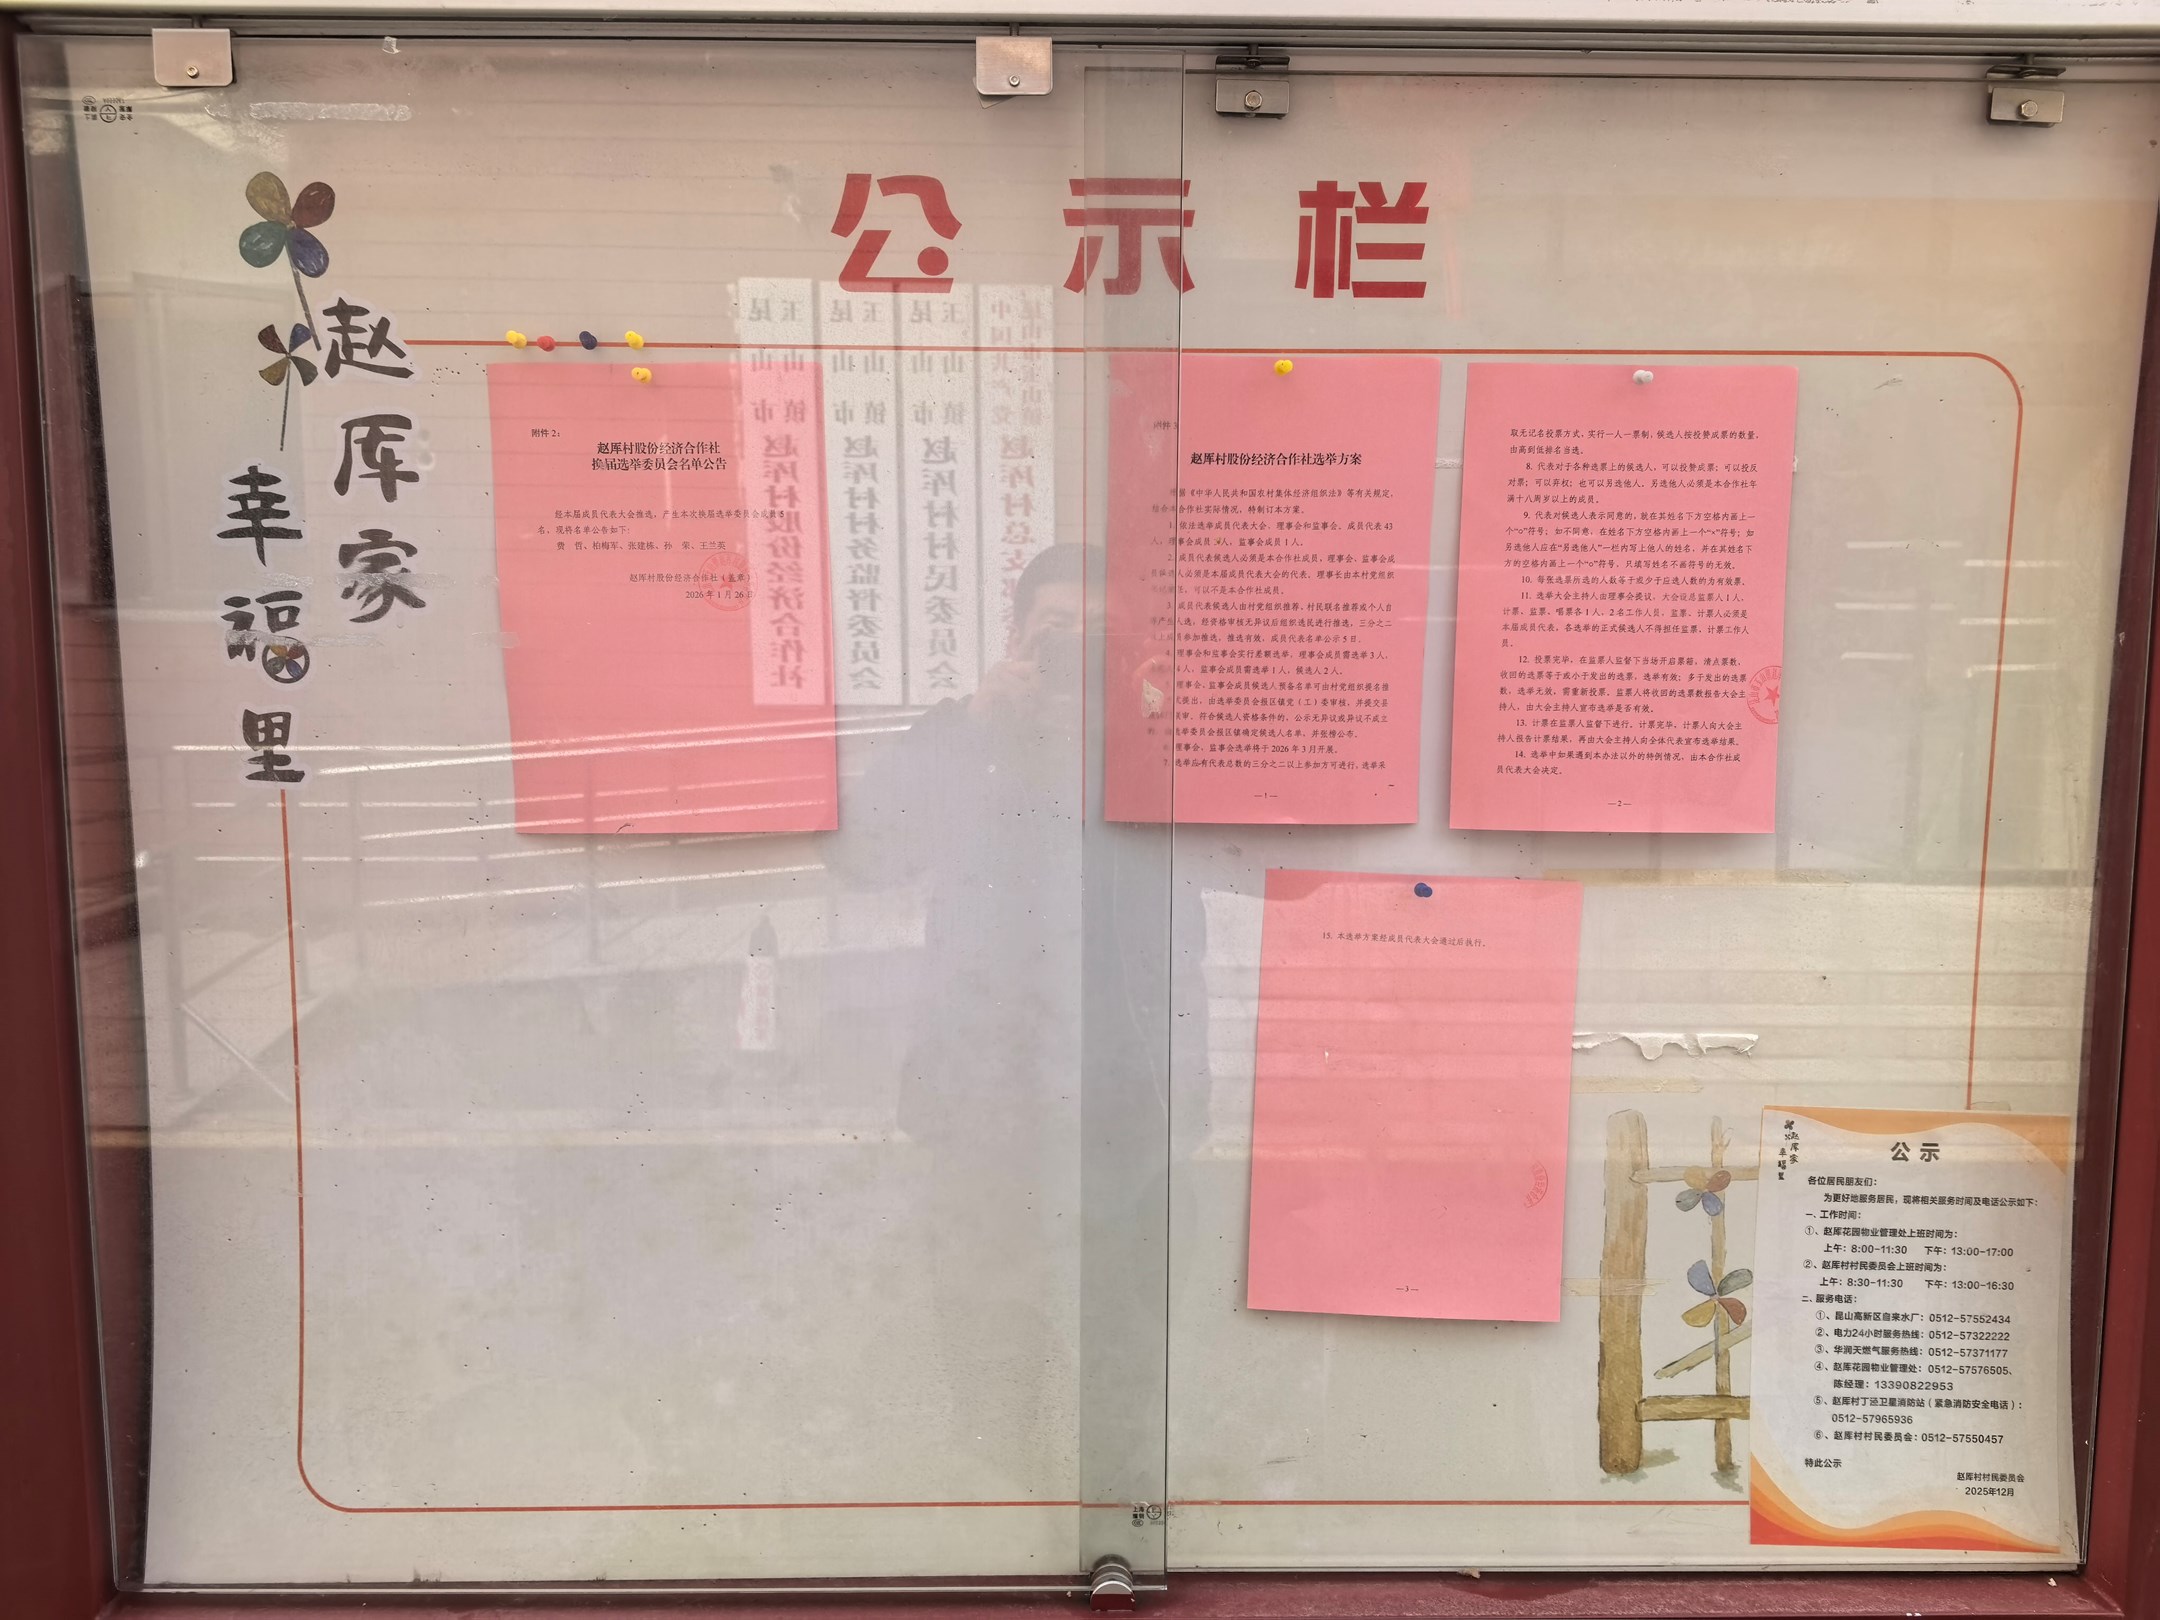 公示栏
赵厍家
幸福里
附件2：
赵厍村股份经济合作社
换届选举委员会名单公告
经本届成员代表大会推选，产生本次换届选举委员会成员5
名，现将名单公告如下：
费 哲、柏梅军、张建栋、孙 荣、王兰英
赵厍村股份经济合作社（盖章）
2026年1月26日
附件3
赵厍村股份经济合作社选举方案
根据《中华人民共和国农村集体经济组织法》等有关规定，
结合本合作社实际情况，特制订本方案。
1. 依法选举成员代表大会、理事会和监事会。成员代表43
人，理事会成员3人，监事会成员1人。
2. 成员代表候选人必须是本合作社成员，理事会、监事会成
人必须是本届成员代表大会的代表。理事长由本村党组织
，可以不是本合作社成员。
3. 成员代表候选人由村党组织推荐、村民联名推荐或个人自
产生人选，经资格审核无异议后组织选民进行推选，三分之二
参加推选，推选有效，成员代表名单公示5日。
4. 理事会和监事会实行差额选举，理事会成员需选举3人，
4人，监事会成员需选举1人，候选人2人。
理事会、监事会成员候选人预备名单可由村党组织提名推
提出，由选举委员会报区镇党（工）委审核，并提交县
联审。符合候选人资格条件的，公示无异议或异议不成立
选举委员会报区镇确定候选人名单，并张榜公布。
6. 理事会、监事会选举将于2026年3月开展。
7. 选举应有代表总数的三分之二以上参加方可进行。选举采
—1—
取无记名投票方式，实行一人一票制，候选人按投赞成票的数量，
由高到低排名当选。
8. 代表对于各种选票上的候选人，可以投赞成票；可以投反
对票；可以弃权；也可以另选他人。另选他人必须是本合作社年
满十八周岁以上的成员。
9. 代表对候选人表示同意的，就在其姓名下方空格内画上一
个“○”符号；如不同意，在姓名下方空格内画上一个“×”符号；如
另选他人应在“另选他人”一栏内写上他人的姓名，并在其姓名下
方的空格内画上一个“○”符号，只填写姓名不画符号的无效。
10. 每张选票所选的人数等于或少于应选人数的为有效票。
11. 选举大会主持人由理事会提议，大会设总监票人1人，
计票、监票、唱票各1人，2名工作人员，监票、计票人必须是
本届成员代表。各选举的正式候选人不得担任监票、计票工作人
员。
12. 投票完毕，在监票人监督下当场开启票箱，清点票数，
收回的选票等于或小于发出的选票，选举有效；多于发出的选票
数，选举无效，需重新投票。监票人将收回的选票数报告大会主
持人，由大会主持人宣布选举是否有效。
13. 计票在监票人监督下进行。计票完毕，计票人向大会主
持人报告计票结果，再由大会主持人向全体代表宣布选举结果。
14. 选举中如果遇到本办法以外的特例情况，由本合作社成
员代表大会决定。
—2—
15. 本选举方案经成员代表大会通过后执行。
—3—
赵厍家
幸福里
公示
各位居民朋友们：
为更好地服务居民，现将相关服务时间及电话公示如下：
一、工作时间：
①、赵厍花园物业管理处上班时间为：
上午：8:00-11:30 下午：13:00-17:00
②、赵厍村村民委员会上班时间为：
上午：8:30-11:30 下午：13:00-16:30
二、服务电话：
①、昆山高新区自来水厂：0512-57552434
②、电力24小时服务热线：0512-57322222
③、华润天燃气服务热线：0512-57371177
④、赵厍花园物业管理处：0512-57576505、
陈经理：13390822953
⑤、赵厍村丁泾卫星消防站（紧急消防安全电话）：
0512-57965936
⑥、赵厍村村民委员会：0512-57550457
特此公示
赵厍村村民委员会
2025年12月